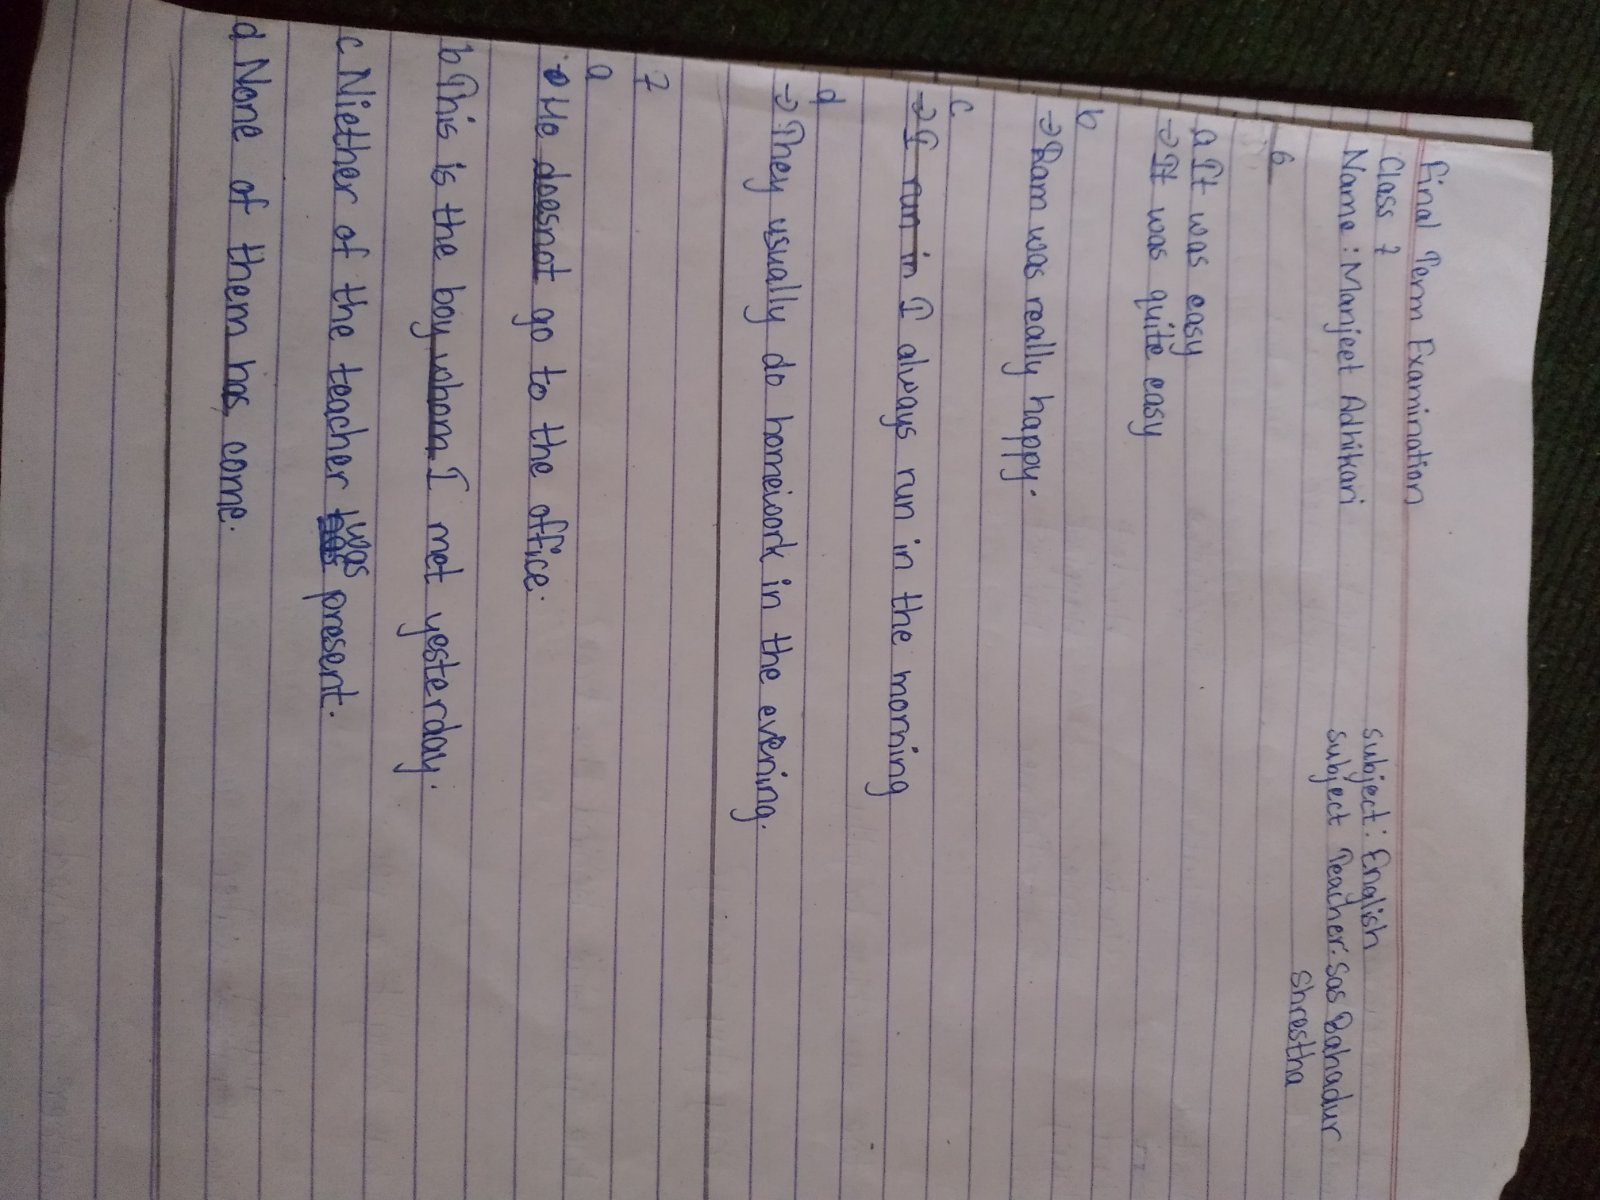 Final Term Examination
Class 7
Subject: English
Name: Manjeet Adhikari
Subject Teacher: Sas Bahadur
Shrestha
6
a It was easy
→ It was quite easy
b
→ Ram was really happy.
c
→ I run in I always run in the morning
d
→ They usually do homework in the evening.
7
a
He doesnot go to the office.
b This is the boy whom I met yesterday.
c Niether of the teacher was present.
d None of them has come.